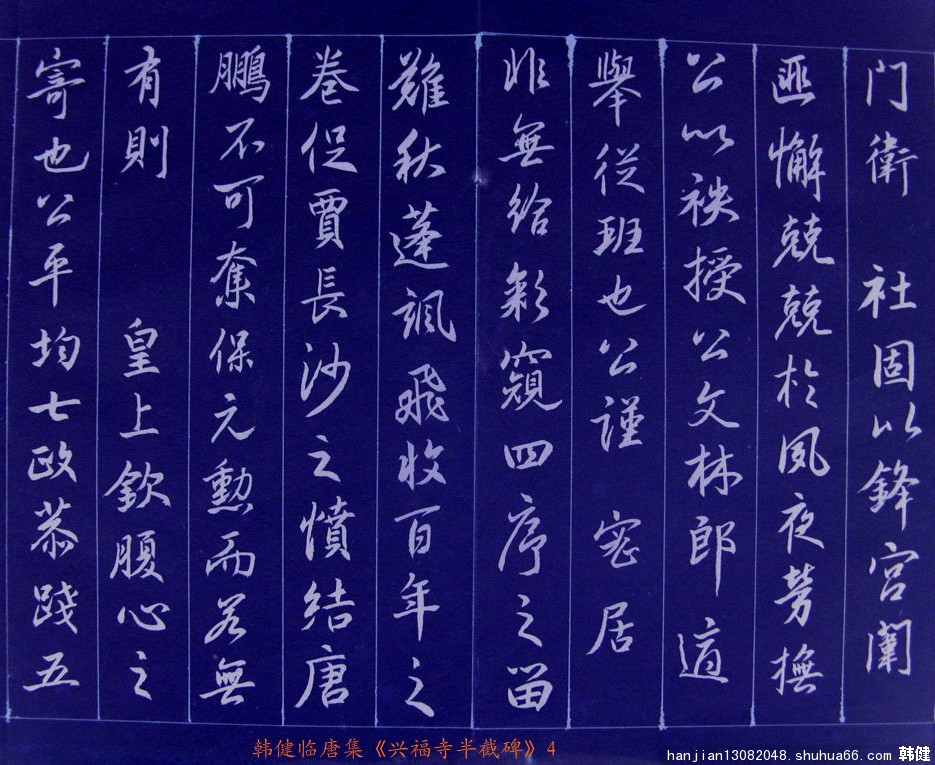 门衛 社固以鋒宮闈
匪懈兢兢於夙夜劳撫
公以袟授公文林郎適
舉從班也公謹 密居
非無給彩窺四序之留
難秋蓬颯飛收百年之
巻促賈長沙之憤結唐
鵬不可奪保元勳而若無
有則 皇上欽腹心之
寄也公平均七政恭踐五
韩健临唐集《兴福寺半截碑》4
hanjian13082048.shuhua66.com 韩健